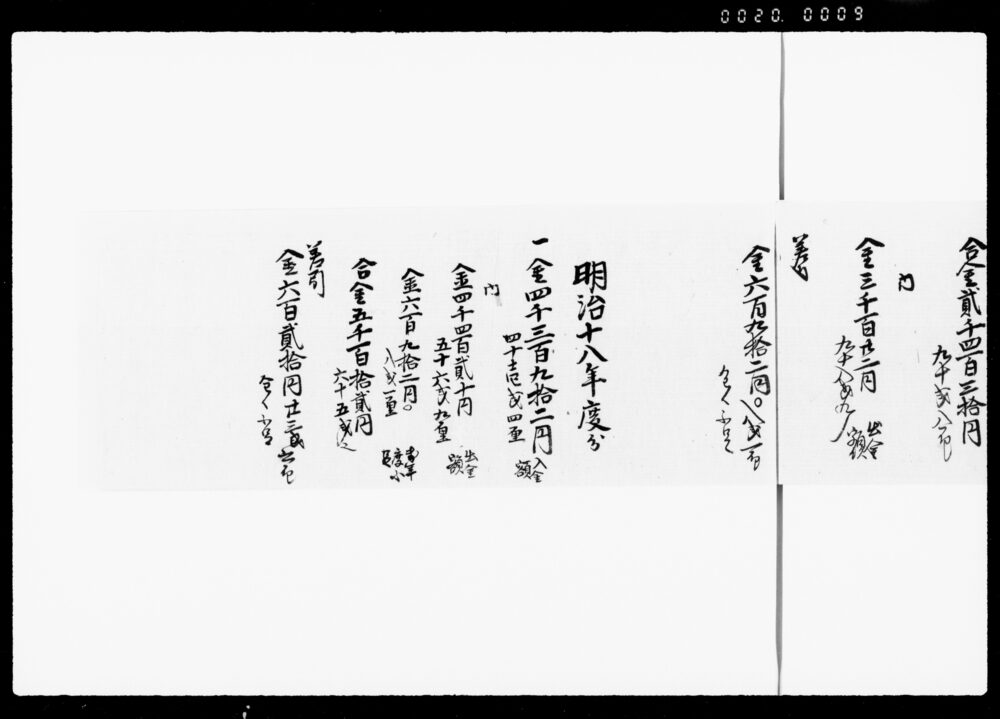 0020. 0009
合金貳千四百三拾円
九十戋八厘
内
金三千百廿二円
九十八戋九厘
出金額
差引
金六百九拾二円〇八戋一厘
全く不足
明治十八年度分
一金四千三百九拾二円
四十壱戋四厘
入金額
内
金四千四百貳十円
五十六戋九厘
出金額
金六百九拾二円〇
八戋一厘
合金五千百拾貳円
六十五戋
差引
金六百貳拾円廿三戋六厘
全く不足